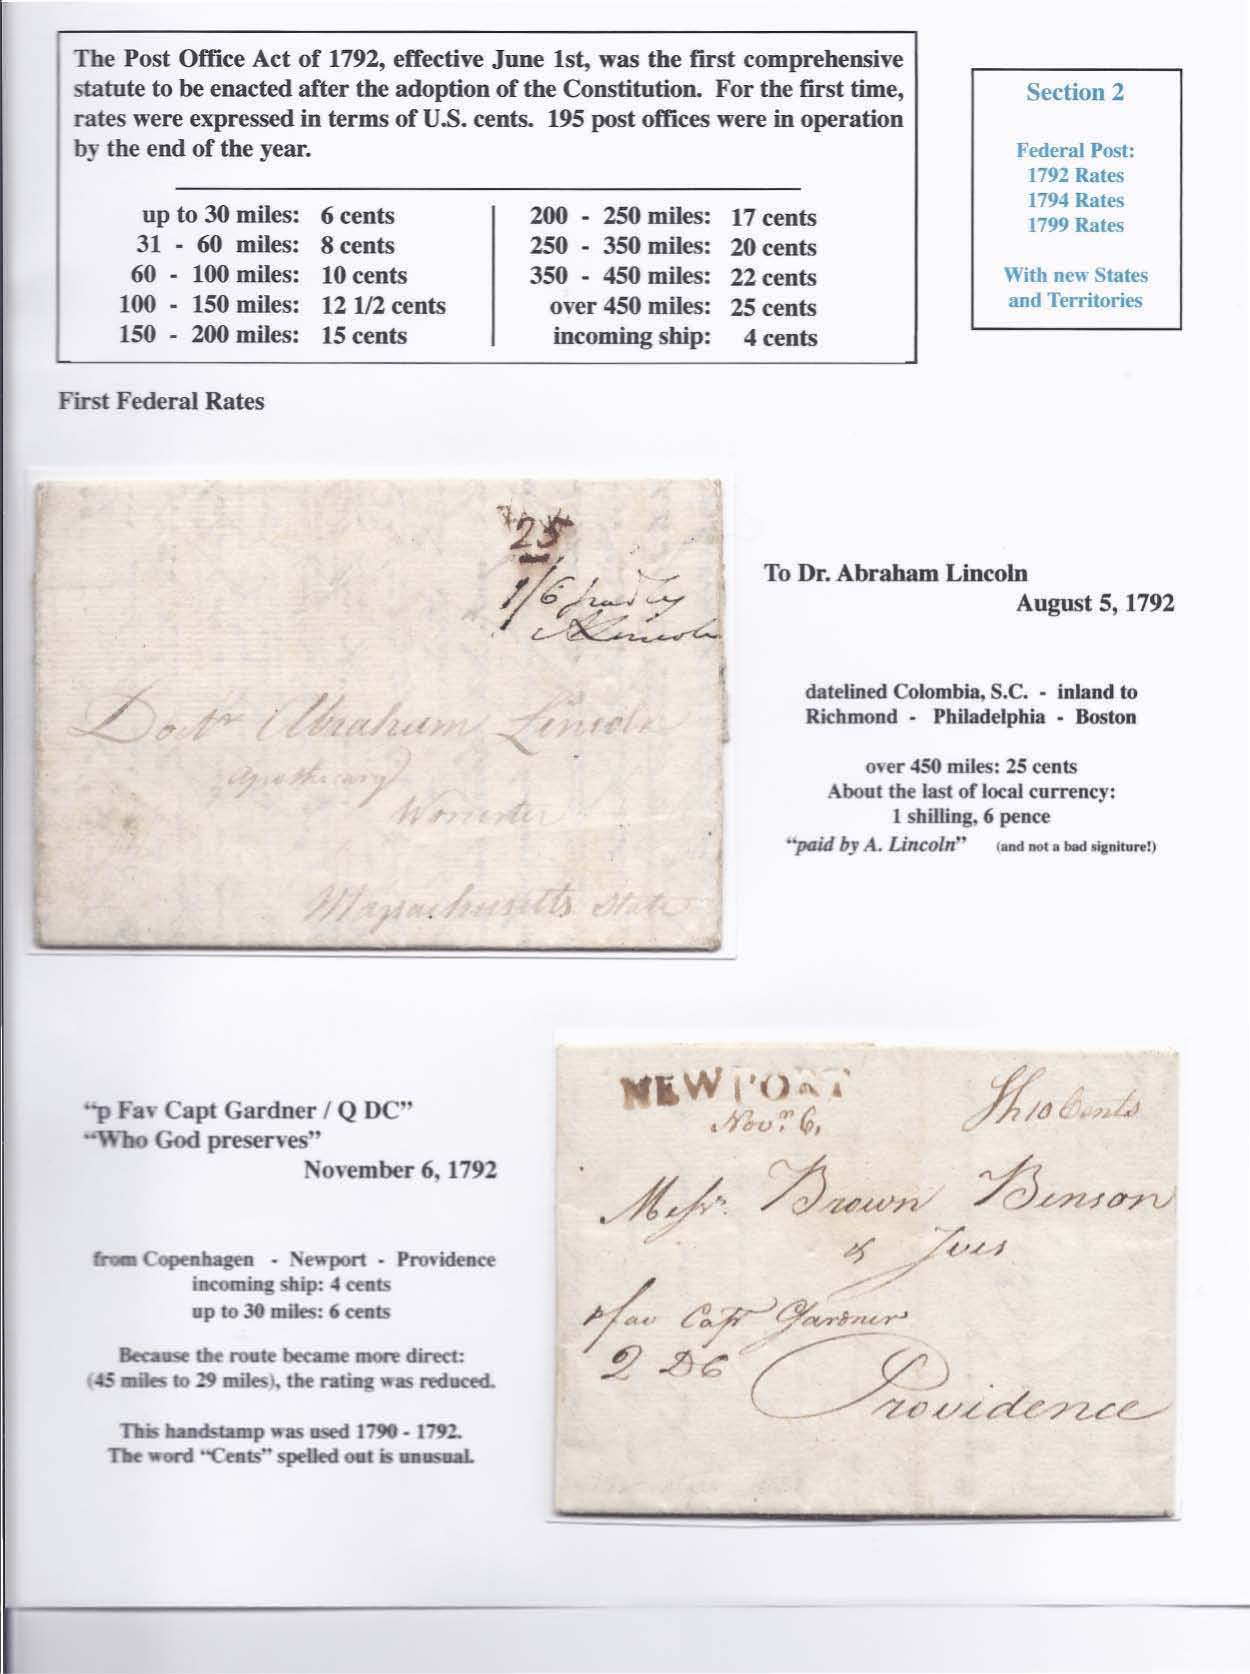 The Post Office Act of 1792, effective June 1st, was the first comprehensive
statute to be enacted after the adoption of the Constitution. For the first time,
rates were expressed in terms of U.S. cents. 195 post offices were in operation
by the end of the year.
up to 30 miles: 6 cents
31 - 60 miles: 8 cents
60 - 100 miles: 10 cents
100 - 150 miles: 12 1/2 cents
150 - 200 miles: 15 cents
200 - 250 miles: 17 cents
250 - 350 miles: 20 cents
350 - 450 miles: 22 cents
over 450 miles: 25 cents
incoming ship: 4 cents
Section 2
Federal Post:
1792 Rates
1794 Rates
1799 Rates
With new States
and Territories
First Federal Rates
25
1/6 paid by
A Lincoln
Doctr Abraham Lincoln
Apothecary
Worcester
Massachusetts State
To Dr. Abraham Lincoln
August 5, 1792
datelined Colombia, S.C. - inland to
Richmond - Philadelphia - Boston
over 450 miles: 25 cents
About the last of local currency:
1 shilling, 6 pence
“paid by A. Lincoln” (and not a bad signiture!)
“p Fav Capt Gardner / Q DC”
“Who God preserves”
November 6, 1792
from Copenhagen - Newport - Providence
incoming ship: 4 cents
up to 30 miles: 6 cents
Because the route became more direct:
(45 miles to 29 miles), the rating was reduced.
This handstamp was used 1790 - 1792.
The word “Cents” spelled out is unusual.
NEWPORT
Novr. 6,
Sh 10 Cents
Messrs. Brown Benson
& Ives
p fav Capt Gardner
Q DC
Providence